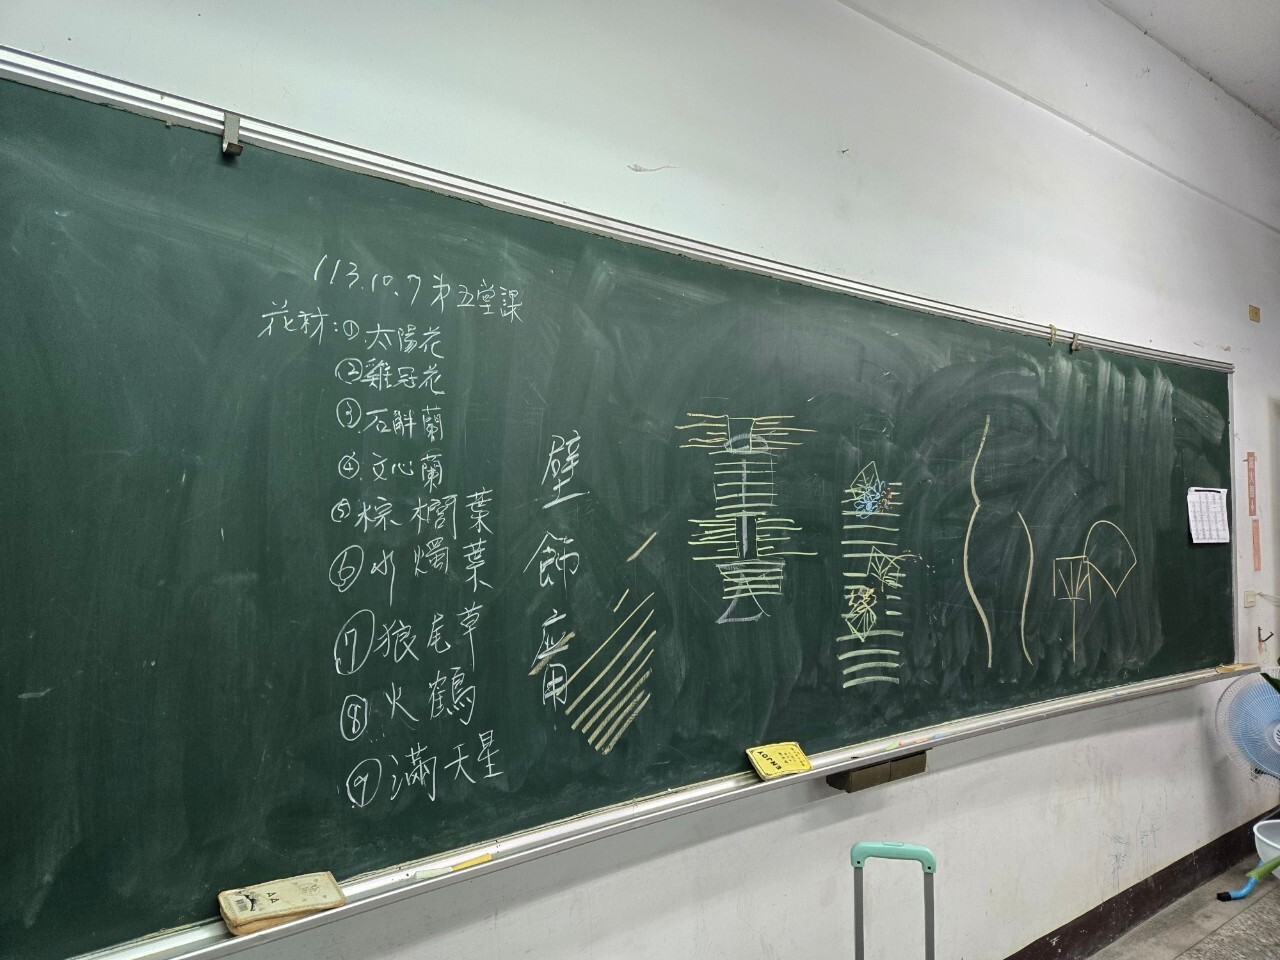 113.10.7 第五堂課
花材:①太陽花
②雞冠花
③石斛蘭
④文心蘭
⑤棕櫚葉
⑥水燭葉
⑦狼尾草
⑧火鶴
⑨滿天星
壁飾应用
ENJOY
AA